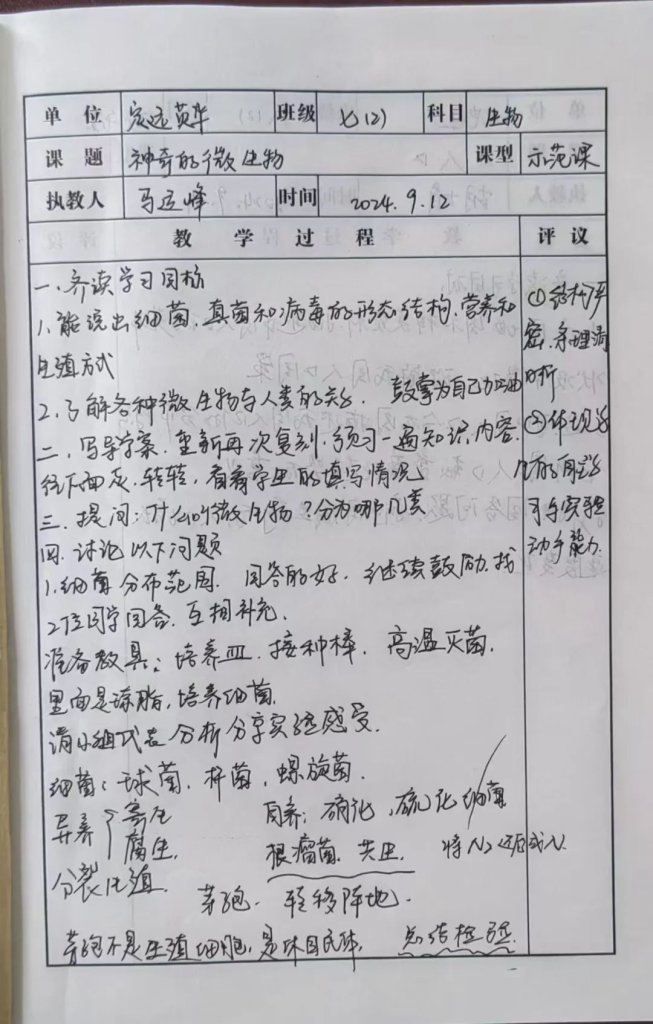 单 位 宏远英华 班级 七(2) 科目 生物
课 题 神奇的微生物 课型 示范课
执教人 马运峰 时间 2024.9.12
教 学 过 程 评 议
一.齐读学习目标
1.能说出细菌、真菌和病毒的形态结构、营养和
生殖方式
2.了解各种微生物与人类的关系. 鼓掌为自己加油
二.写导学案.重新再次复刻.预习一遍知识内容.
往下面走.转转.看看学生的填写情况
三.提问:什么叫微生物?分为哪几类
四.讨论以下问题
1.细菌分布范围. 回答的好.继续鼓励.找
2位同学回答.互相补充.
准备教具:培养皿.接种棒. 高温灭菌.
里面是琼脂,培养细菌.
请小组代表分析分享实验感受.
细菌:球菌,杆菌,螺旋菌.
异养 寄生 自养:硝化,硫化细菌
腐生. 根瘤菌.共生. 将N₂还原成N.
分裂生殖. 芽孢. 转移阵地.
芽孢不是生殖细胞,是休眠体. 总结检验.
①结构严
密.条理清
晰
②体现学
生的自主学
习与实验
动手能力.